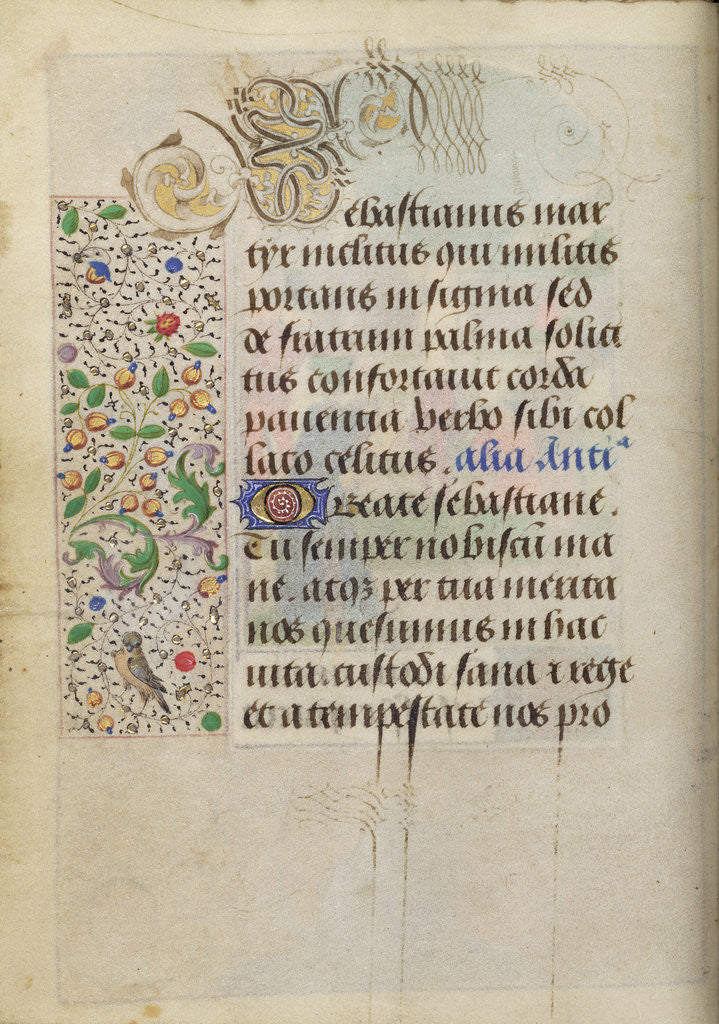 Sebastianus mar
tyr inclitus qui militis
portans insignia sed
de fratrum palma solici
tus confortauit corda
pauentia verbo sibi col
lato celitus. alia Antiᵃ
O Beate sebastiane.
Tu semper nobiscū ma
ne. atqꝫ per tua merita
nos quesumus in hac
uita. custodi sana ⁊ rege
et a tempestate nos pro